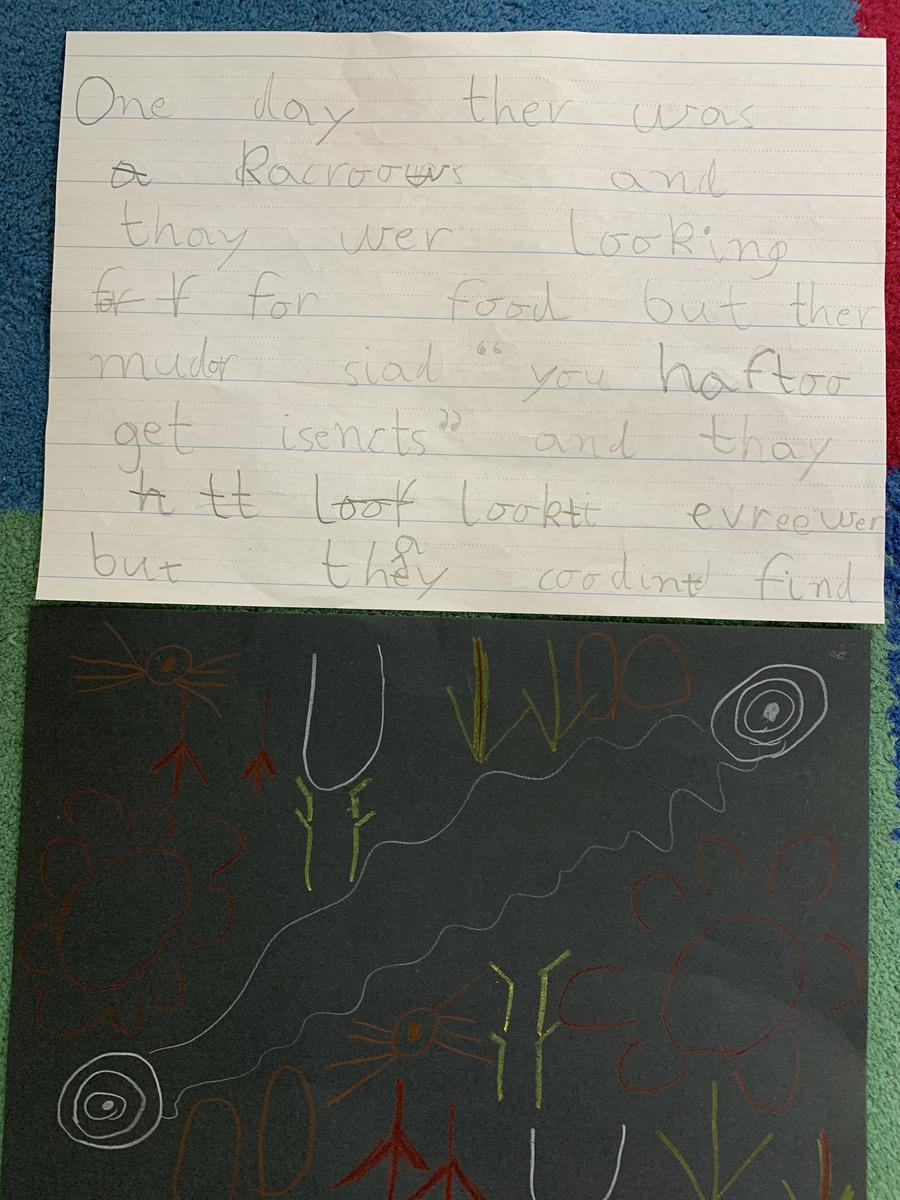 One day ther was
a Racroows and
thay wer looking
for r for food but ther
mudor siad “ you haftoo
get isencts” and thay
h tt look looktt evreewer
but thay coodint find